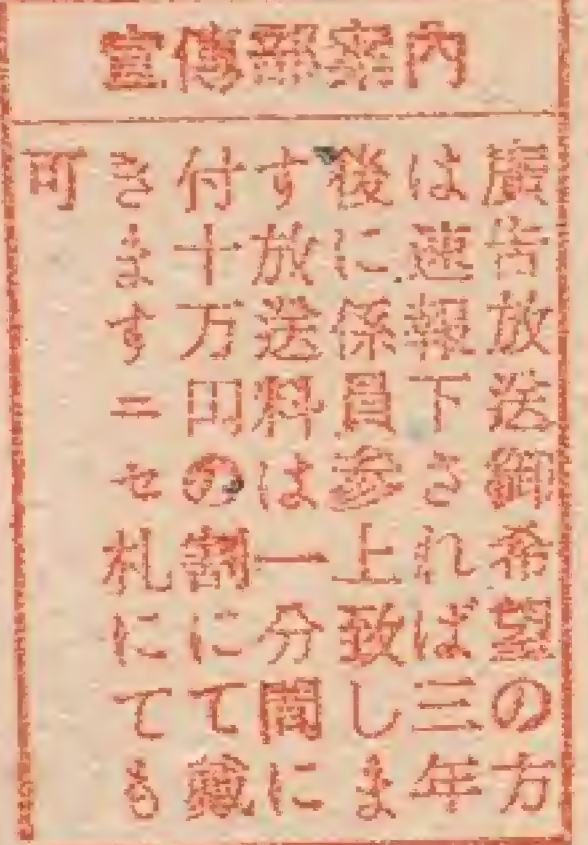 宣傳部案内
廣告放送御希望の方
は速報下されば三年
後に係員参上致しま
す放送料は一分間に
付十万円の割にて戴
きますニセ札にても
可